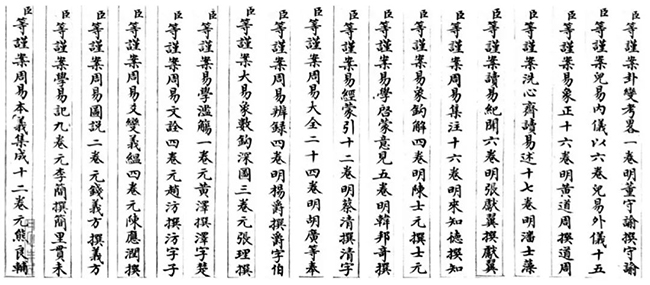 臣等謹案卦變考畧一卷明董守諭撰守諭
臣等謹案兒易内儀以六卷兒易外儀十五
臣等謹案易象正十六卷明黄道周撰道周
臣等謹案洗心齋讀易述十七卷明潘士藻
臣等謹案讀易紀聞六卷明張獻翼撰獻翼
臣等謹案周易集注十六卷明來知德撰知
臣等謹案易象鈎解四卷明陳士元撰士元
臣等謹案易學啓蒙意見五卷明韓邦奇撰
臣等謹案易經蒙引十二卷明蔡清撰清字
臣等謹案周易大全二十四卷明胡廣等奉
臣等謹案周易辨録四卷明楊爵撰爵字伯
臣等謹案大易象數鈎深圖三卷元張理撰
臣等謹案易學濫觴一卷元黄澤撰澤字楚
臣等謹案周易文詮四卷元趙汸撰汸字子
臣等謹案周易爻變義縕四卷元陳應潤撰
臣等謹案周易圖說二卷元錢義方撰義方
臣等謹案學易記九卷元李簡撰簡里貫未
臣等謹案周易本義集成十二卷元熊良輔